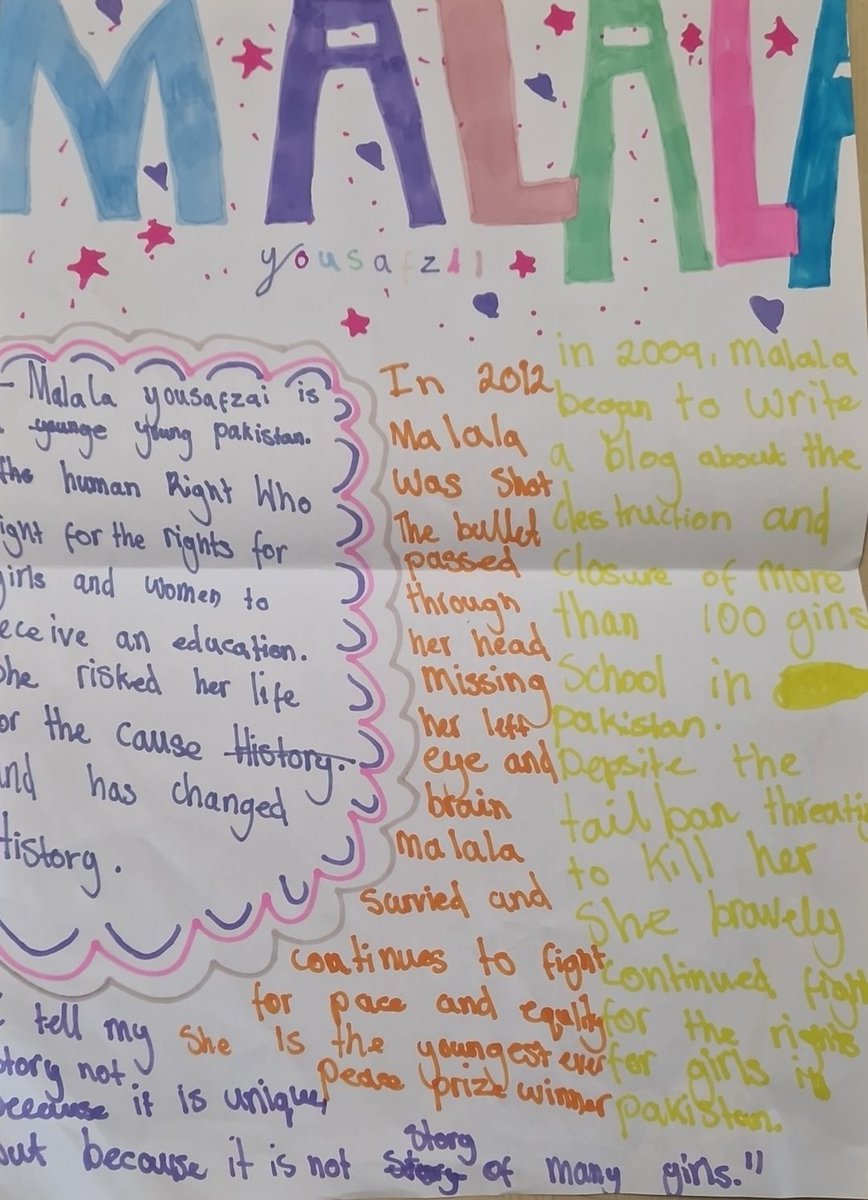 MALALA
yousafzai
- Malala yousafzai is
younge young pakistan.
the human Right Who
ight for the rights for
girls and women to
eceive an education.
she risked her life
or the cause History.
and has changed
History.
In 2012
Malala
was shot
The bullet
passed
through
her head
missing
her left
eye and
brain
malala
survied and
continues to fight
for pace and equality
She Is the youngest ever
pease prize winner
in 2009, Malala
began to write
a blog about the
destruction and
closure of more
than 100 girls
School in
pakistan.
Depsite the
tailban threatin
to kill her
She bravely
continued figh
for the rights
for girls in
pakistan.
I tell my
story not
because it is unique,
but because it is not story of many girls."